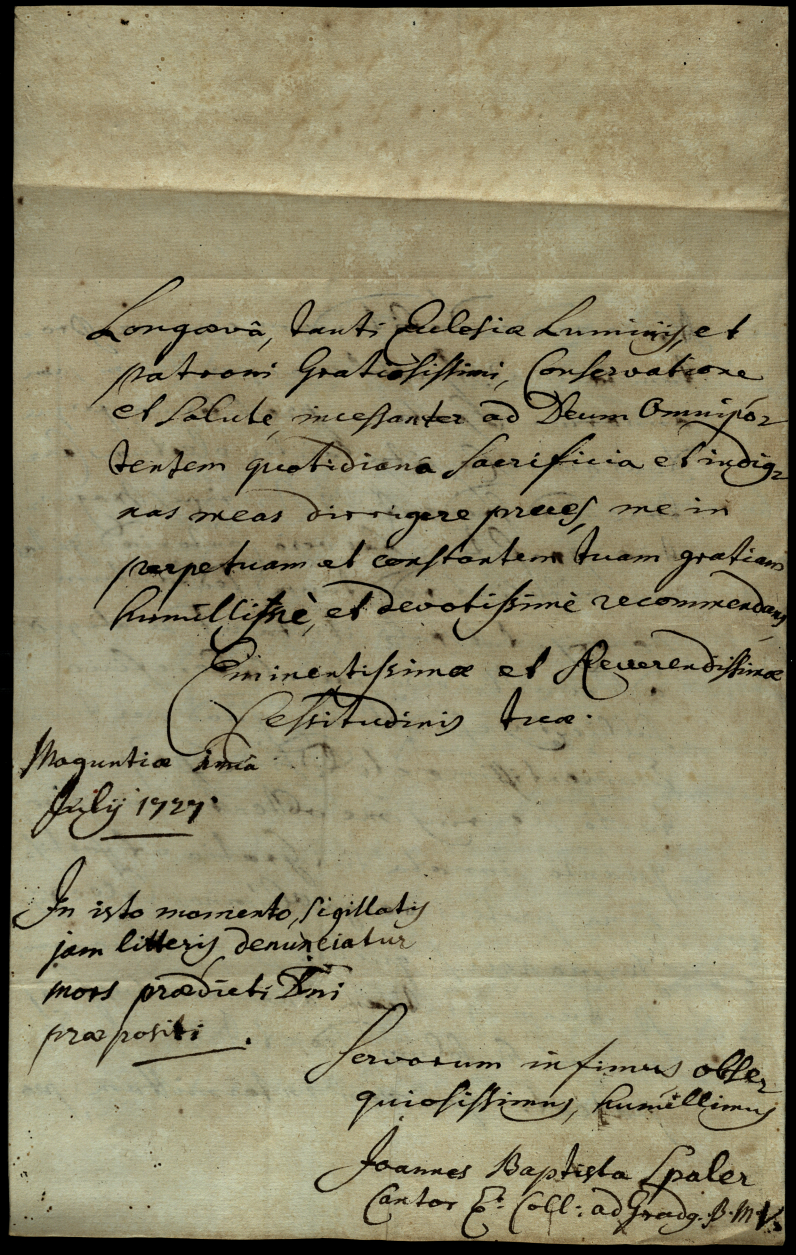 Longævâ, tanti Ecclesiæ Luminis, et
patroni Gratiosissimi, Conservatione
et Salute, incessanter ad Deum Omnipo-
tentem quotidiana Sacrificia et indig-
nas meas dirrigere preces, me in
perpetuam et constantem tuam gratiam
humillissimè, et devotissimè recommendans
Eminentissimæ et Reverendissimæ
Celsitudinis tuæ.
Moguntiæ
July 1727.
In isto momento, sigillatis
jam litteris denunciatur
mors prædicti Dni
præpositi.
Servorum infimus obse-
quiosissimus, humillimus
Joannes Baptista Spaler
Cantor E. Coll: ad Grady. B. M. V.